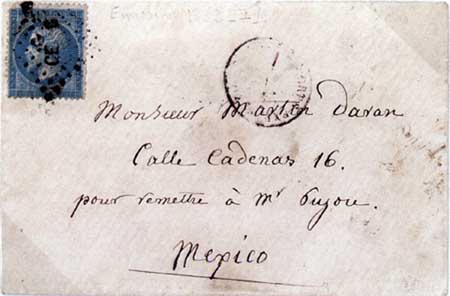 Monsieur Martin Daran
Calle Cadenas 16.
pour remettre à Mr Pujou.
Mexico